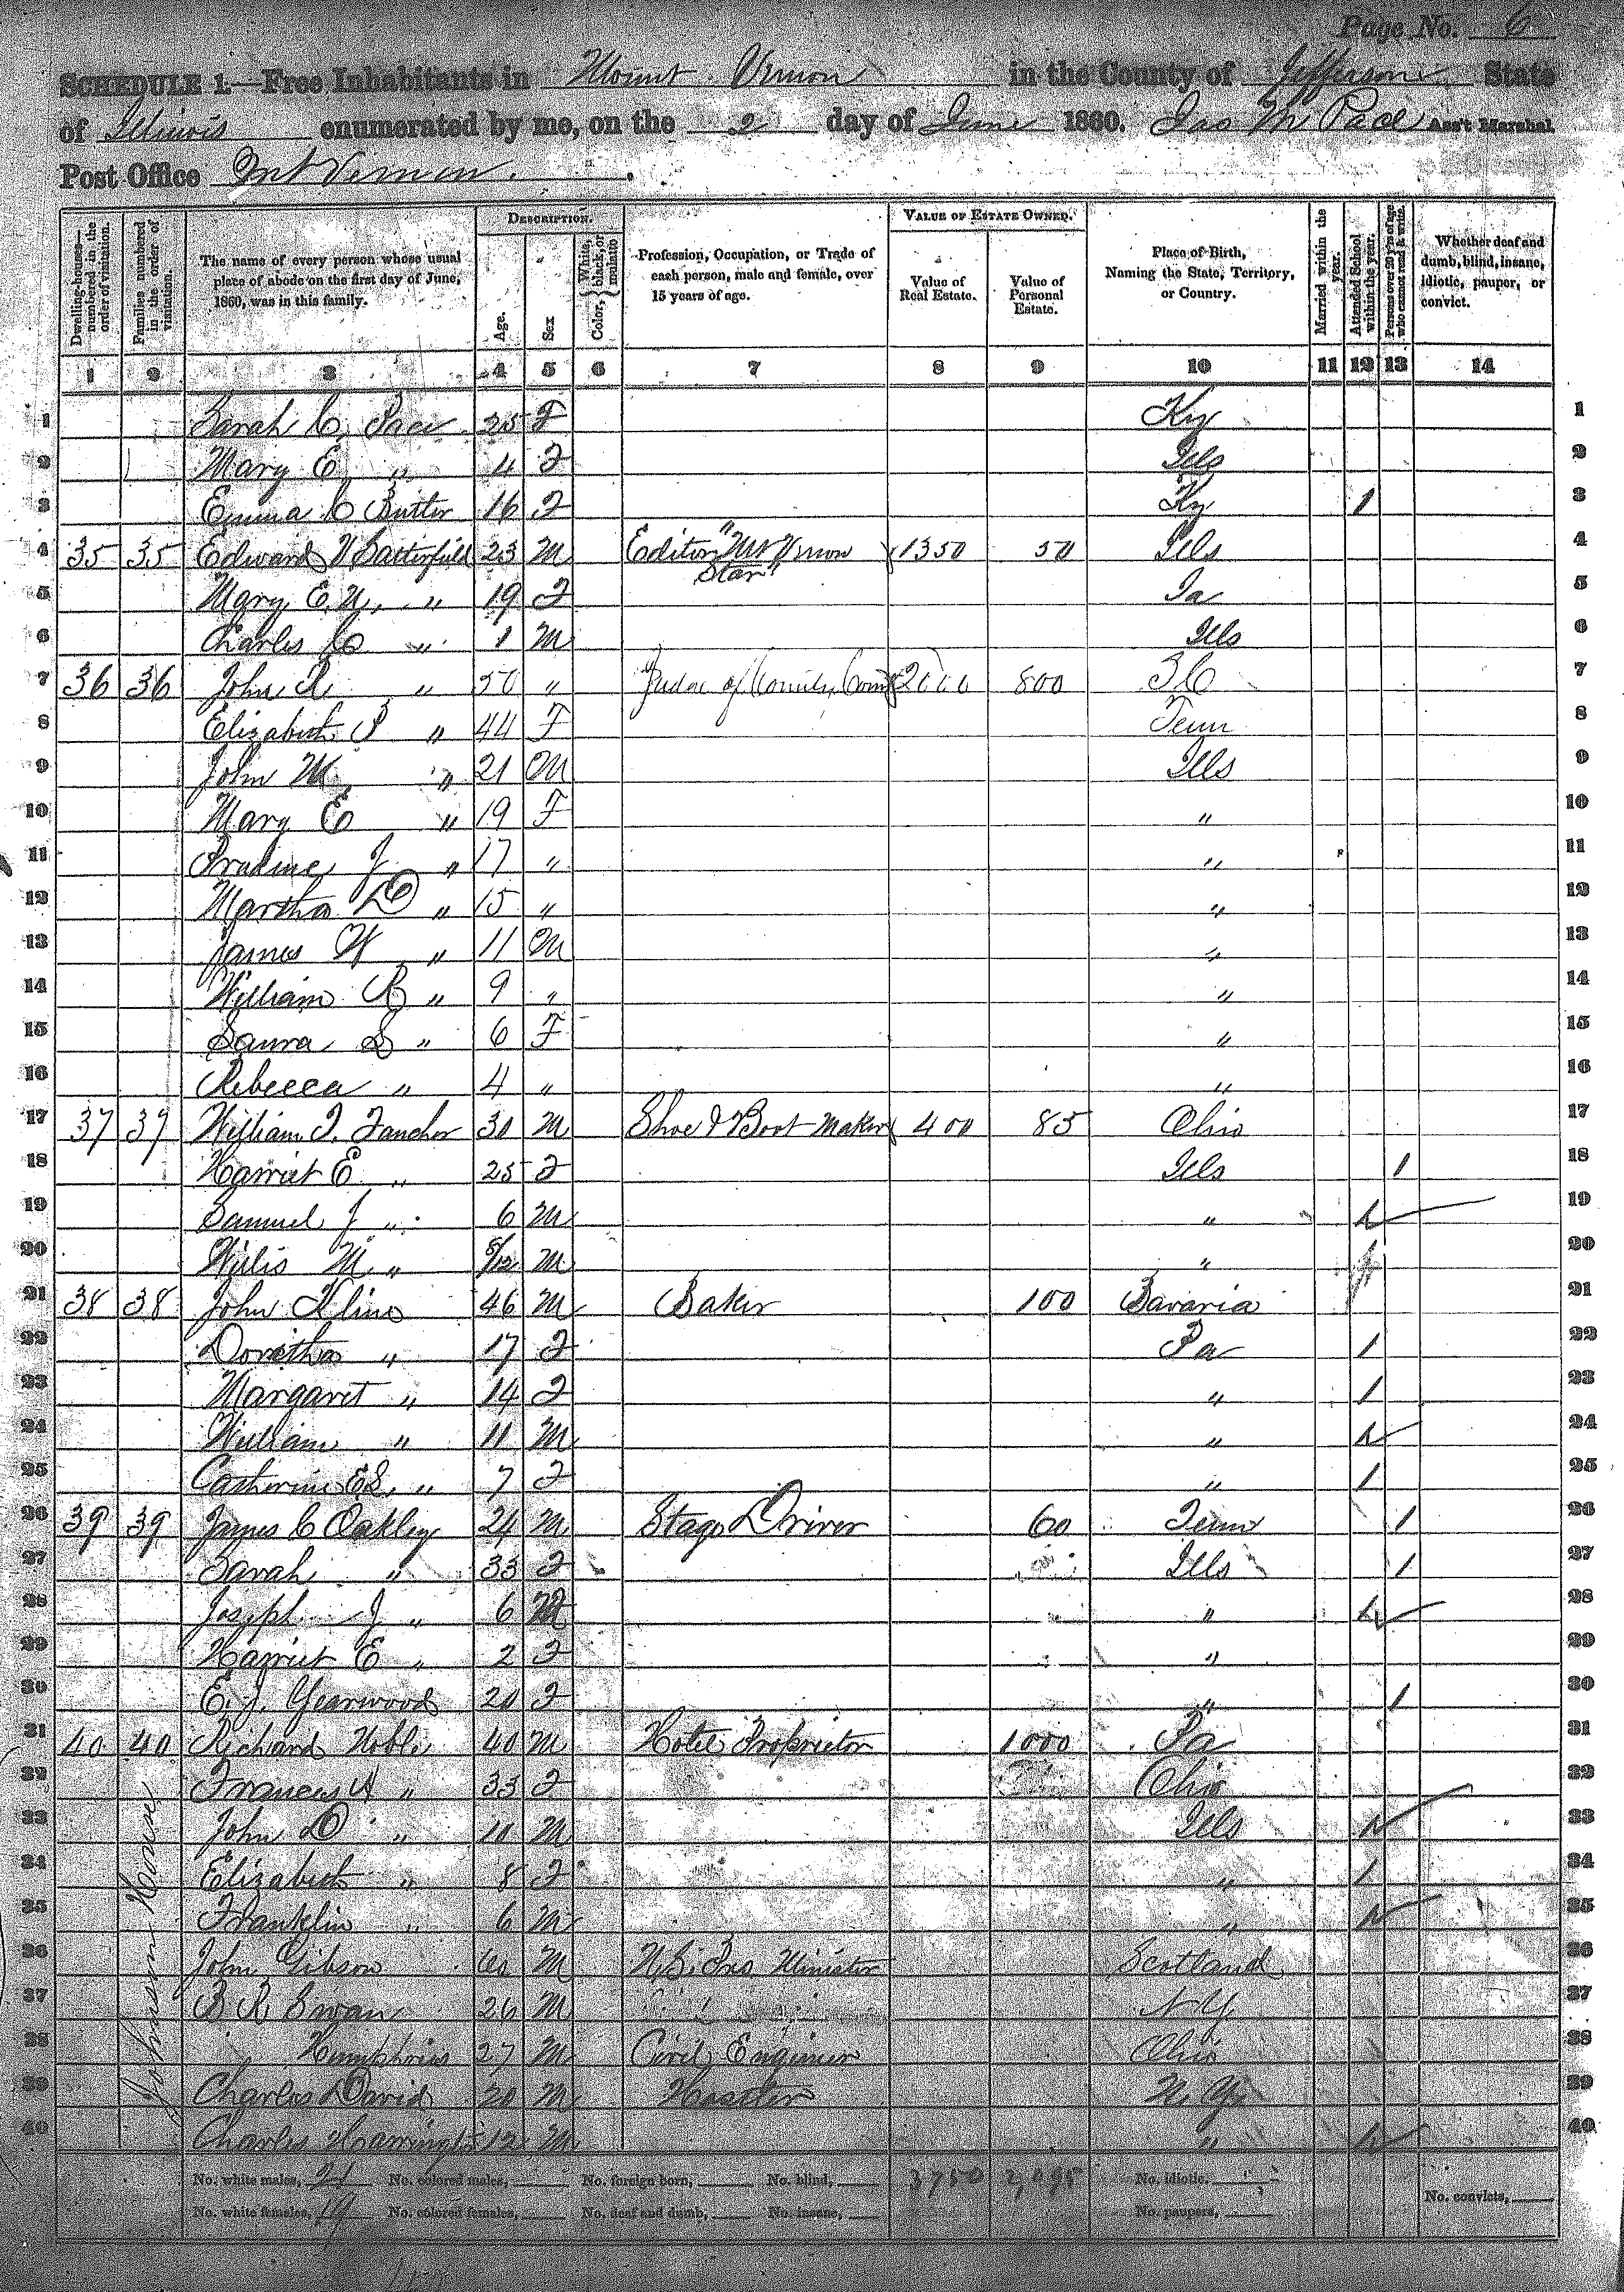 Page No. 6
SCHEDULE 1.—Free Inhabitants in Mount Vernon in the County of Jefferson State
of Illinois enumerated by me, on the 2 day of June 1860. Jas M Pace Ass't Marshal.
Post Office Mt Vernon.
DESCRIPTION. VALUE OF ESTATE OWNED.
Dwelling-houses—numbered in the order of visitation.
Families numbered in the order of visitation.
The name of every person whose usual place of abode on the first day of June, 1860, was in this family.
Age.
Sex
Color, { White, black, or mulatto
Profession, Occupation, or Trade of each person, male and female, over 15 years of age.
Value of Real Estate.
Value of Personal Estate.
Place of Birth, Naming the State, Territory, or Country.
Married within the year.
Attended School within the year.
Persons over 20 y'rs of age who cannot read & write.
Whether deaf and dumb, blind, insane, idiotic, pauper, or convict.
1 2 3 4 5 6 7 8 9 10 11 12 13 14
1 Sarah C. Pace 25 F Ky 1
2 Mary E " 4 F Ills 2
3 Emma C Butler 16 F Ky 1 3
4 35 35 Edward V Satterfield 23 M Editor "Mt Vernon Star" 1350 50 Ills 4
5 Mary E. " 19 F 5
6 Charles C " 1 M Ills 6
7 36 36 John R " 50 " Judge of County Court 2000 800 SC 7
8 Elizabeth P " 44 F Tenn 8
9 John M " 21 M Ills 9
10 Mary E " 19 F " 10
11 J " 17 " " 11
12 Martha D " 15 " " 12
13 James W " 11 M " 13
14 William R " 9 " " 14
15 Laura S " 6 F " 15
16 Rebecca " 4 " " 16
17 37 37 William J. Fancher 30 M Shoe & Boot Maker 400 85 Ohio 17
18 Harriet E " 25 F Ills 1 18
19 Samuel J " 6 M " 19
20 Willis M " 8/12 M " 20
21 38 38 John Kline 46 M Baker 100 Bavaria 21
22 Doretha " 17 F Pa 1 22
23 Margaret " 14 F " 1 23
24 William " 11 M " 24
25 Catherine E S. " 7 F " 1 25
26 39 39 James C Oakley 24 M Stage Driver 60 Tenn 1 26
27 Sarah " 33 F Ills 1 27
28 Joseph J " 6 M " 28
29 Harriet E " 2 F " 29
30 E. J. Yearwood 20 F " 1 30
31 40 40 Richard Noble 40 M Hotel Proprietor 1000 Pa 31
32 Frances A " 33 F Ohio 32
33 John D " 10 M Ills 33
34 Elizabeth " 8 F " 1 34
35 Franklin " 6 M " 35
36 John Gibson 60 M Minister Scotland 36
37 B R Swan 26 M N Y 37
38 Humphries 27 M Civil Engineer Ohio 38
39 Charles David 20 M Hostler N. Y. 39
40 Charles Harrington 12 M " 40
Johnson House
No. white males, 21 No. colored males, No. foreign born, No. blind, 3750 2,095 No. idiotic,
No. white females, 19 No. colored females, No. deaf and dumb, No. insane, No. paupers, No. convicts,